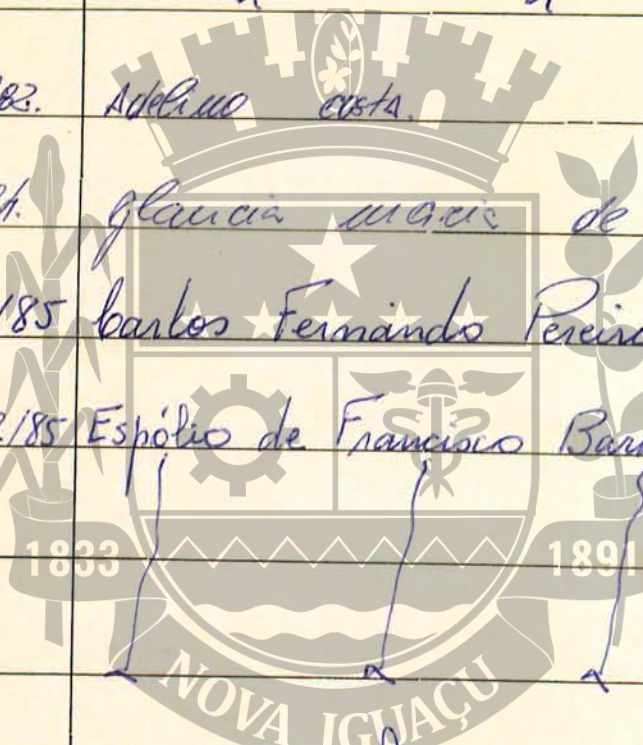 82. Adelino costa.
4. Glaucia maria de
/85 Carlos Fernando Pereira
2/85 Espólio de Francisco Bar
1833 1891
NOVA IGUAÇU